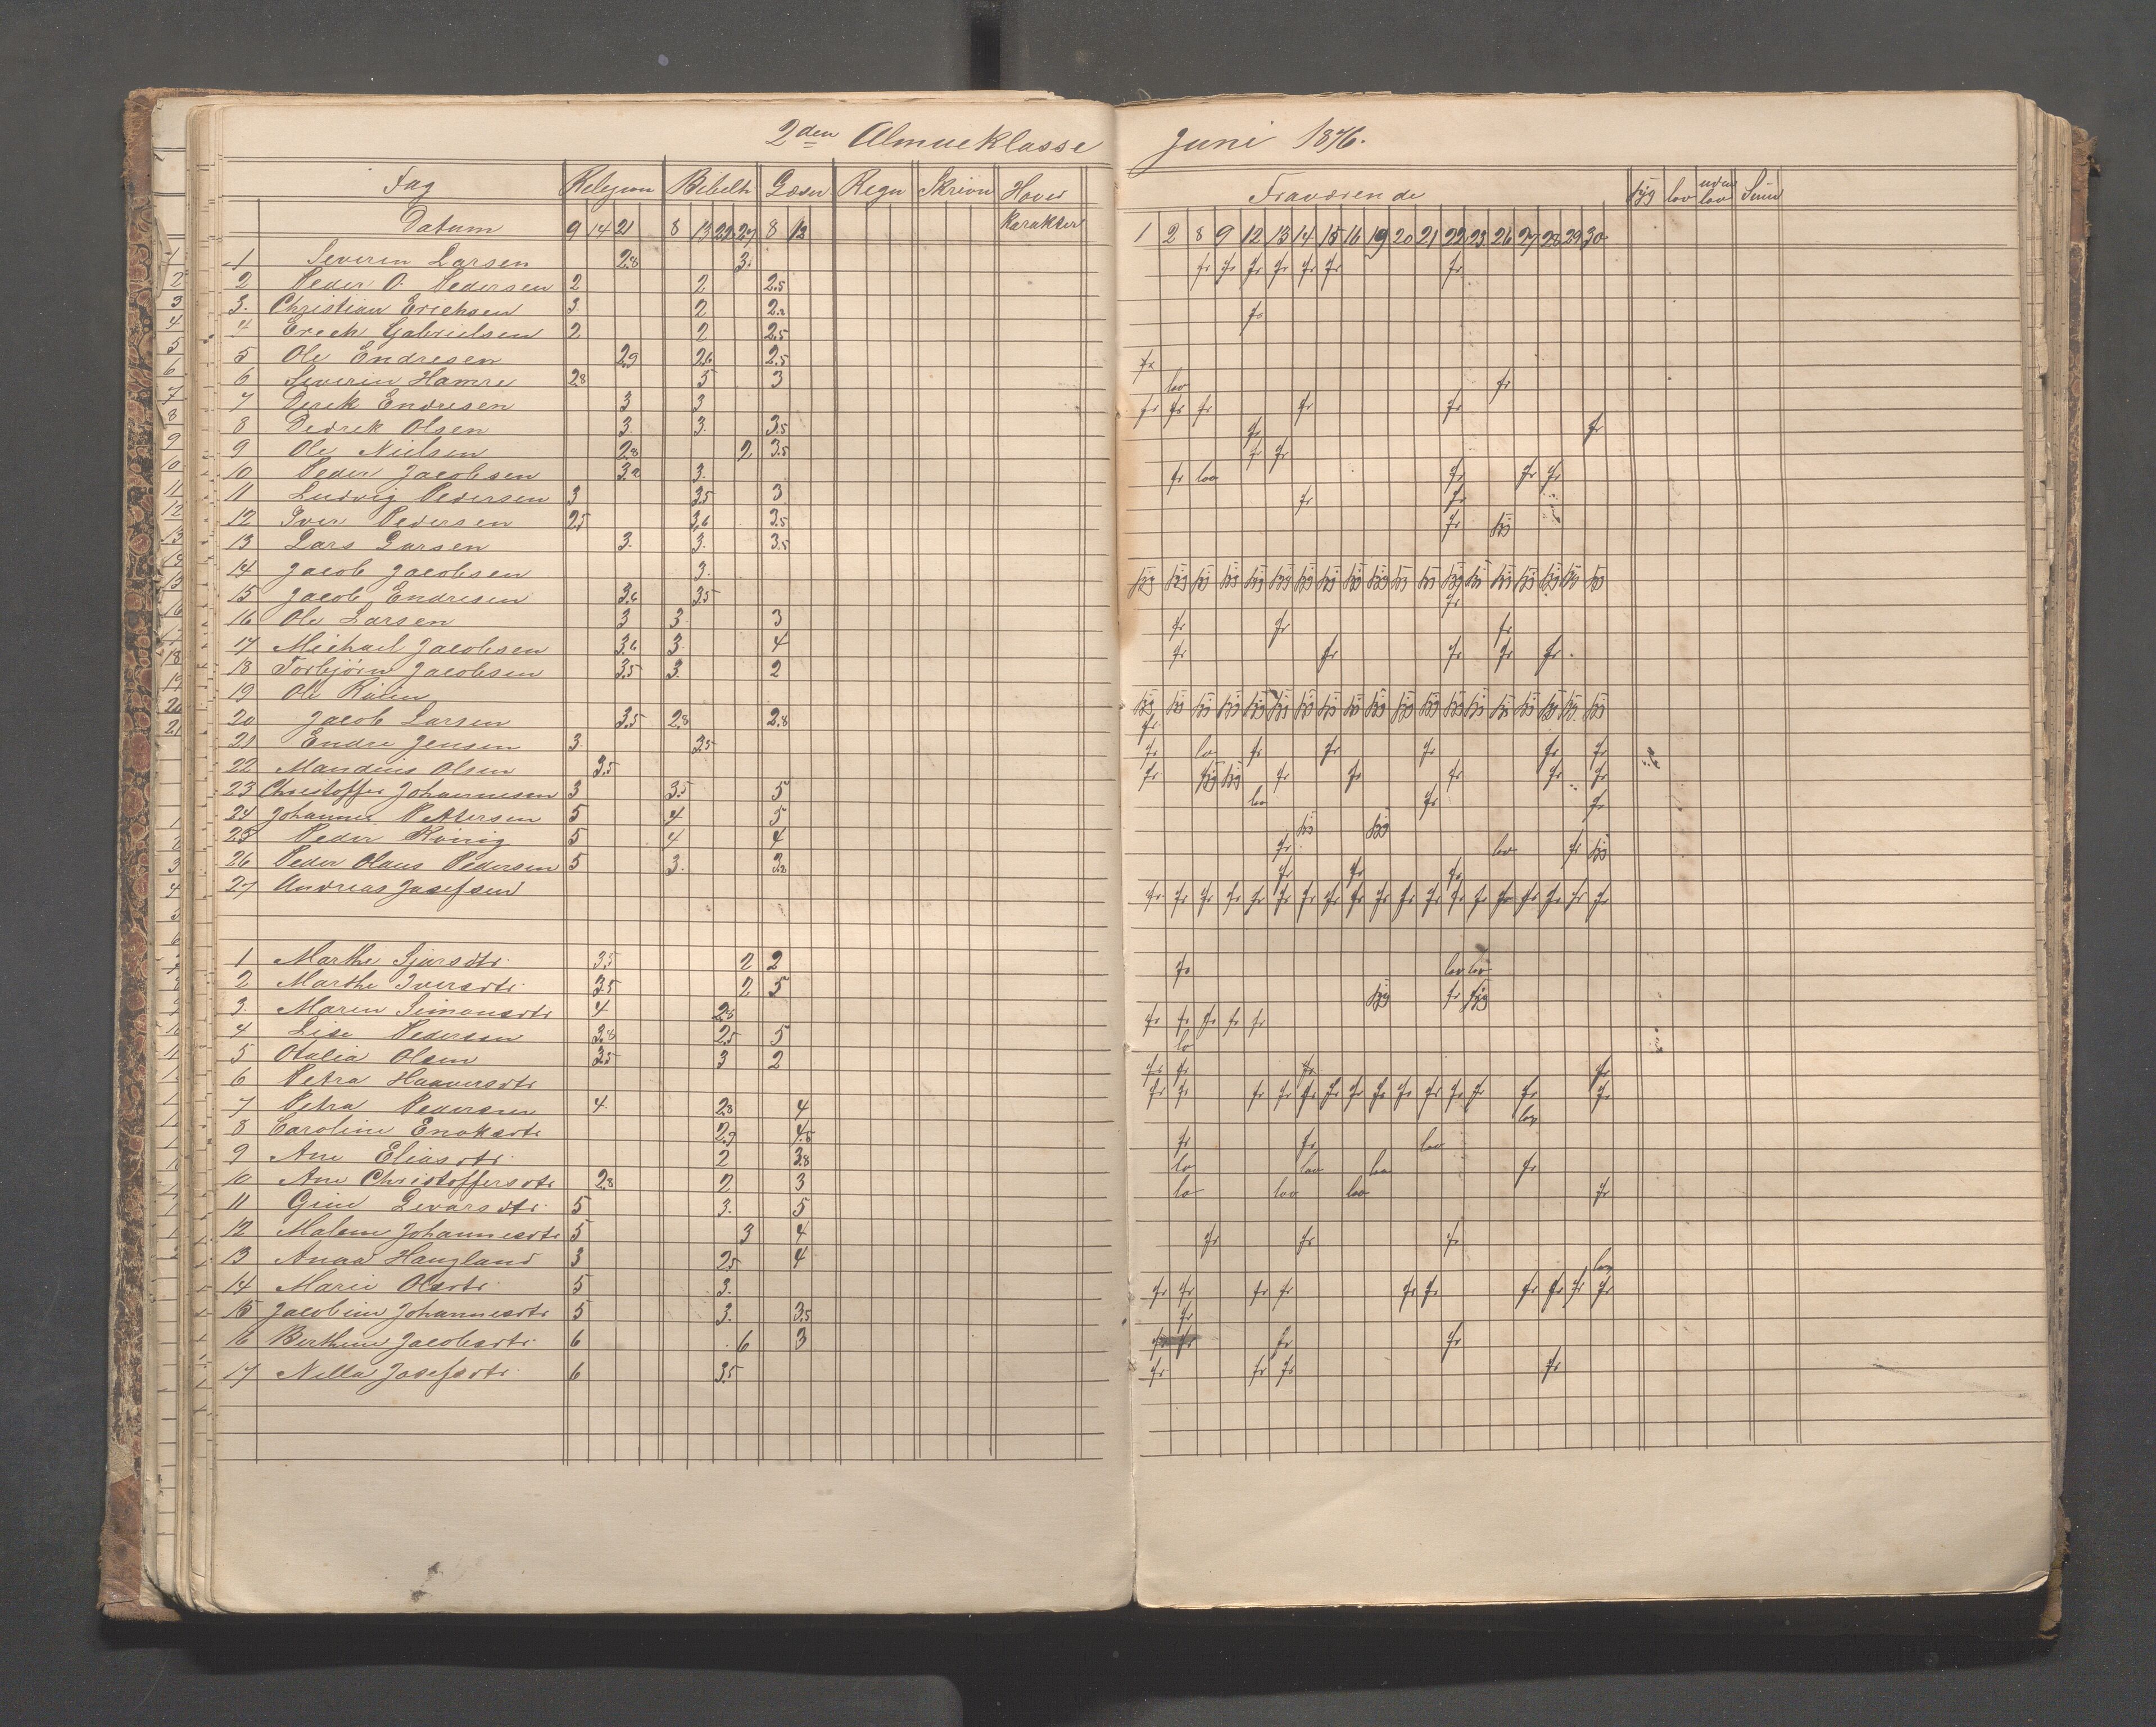 2den Almueklasse Juni 1876.
Fag Religion Bibelh Læsn Regn Skrivn Hoved karakter Fraværende syg lov uden lov Sum
Datum 9 14 21 8 13 22 27 8 12 1 2 8 9 12 13 14 15 16 19 20 21 22 23 26 27 28 29 30
1 Severin Larsen 2.8 3. fr fr fr fr fr fr fr
2 Peder O. Pedersen 2 2 2.5
3. Christian Erichsen 3. 2 2.2 fr
4 Erech Gabrielsen 2 2 2.5
5 Ole Endresen 2.9 2.6 2.5 fr
6 Severin Hamre 2.8 5 3 lov fr
7 Derek Endresen 3 3 fr fr fr fr fr
8 Dedrek Olsen 3. 3. 3.5 fr fr
9 Ole Nielsen 2.8 2 3.5 fr fr
10 Peder Jacobsen 3.2 3. fr lov fr fr fr
11 Ludvig Pedersen 3 3.5 3 fr fr
12 Iver Pedersen 2.5 3.6 3.5 fr syg
13 Lars Larsen 3. 3. 3.5
14 Jacob Jacobsen 3. syg syg syg syg syg syg syg syg syg syg syg syg syg syg syg syg syg syg syg
15 Jacob Endresen 3.6 3.5 fr
16 Ole Larsen 3 3 3 fr fr fr
17 Michael Jacobsen 3.6 3. 4 fr fr fr fr fr
18 Torbjørn Jacobsen 3.5 3. 2
19 Ole syg syg syg syg syg syg syg syg syg syg syg syg syg syg syg syg syg syg syg
20 Jacob Larsen 3.5 2.8 2.8 fr
21 Endre Jensen 3. 3.5 fr lo fr fr fr fr fr
22 Mandius Olsen 3.5 fr syg syg fr fr fr fr fr
23 Christoffer Johannesen 3 3.5 5 lov fr fr
24 Johannes Pettersen 5 4 5 syg syg
25 Peder König 5 4 4 fr lov fr syg
26 Peder Olaus Pedersen 5 3. 3.2 fr fr fr
27 Andreas Josefsen fr fr fr fr fr fr fr fr fr fr fr fr fr fr fr fr fr fr fr
1 Marthe Sjursdtr. 3.5 2 2 fr lov lov
2 Marthe Iversdtr. 3.5 2 5 syg fr syg
3. Maren Simonsdtr 4 2.8 fr fr fr fr fr
4 Lise Pedersen 3.8 2.5 5 lo
5 Otalia Olsen 3.5 3 2 fr fr fr fr
6 Petra Haaversdtr fr fr fr fr fr fr fr fr fr fr fr fr fr fr
7 Petra Pedersen 4. 2.8 4 lov
8 Caroline Enoksdtr 2.9 4.5 fr fr lov
9 Ane Eliasdtr. 2 3.8 lo lov lov fr
10 Ane Christoffersdtr 2.8 2 3 lo lov lov fr
11 Gine Sivarsdtr. 5 3. 5
12 Malene Johannesdtr 5 3 4 fr fr fr
13 Anna Haugland 3 2.5 4 lov
14 Marie Olsdtr. 5 3. fr fr fr fr fr fr fr fr fr fr
15 Jacobine Johannesdtr 5 3. 3.5 fr
16 Berthine Jacobsdtr. 6 6 3 fr fr fr
17 Nilla Josefsdtr. 6 3.5 fr fr fr fr